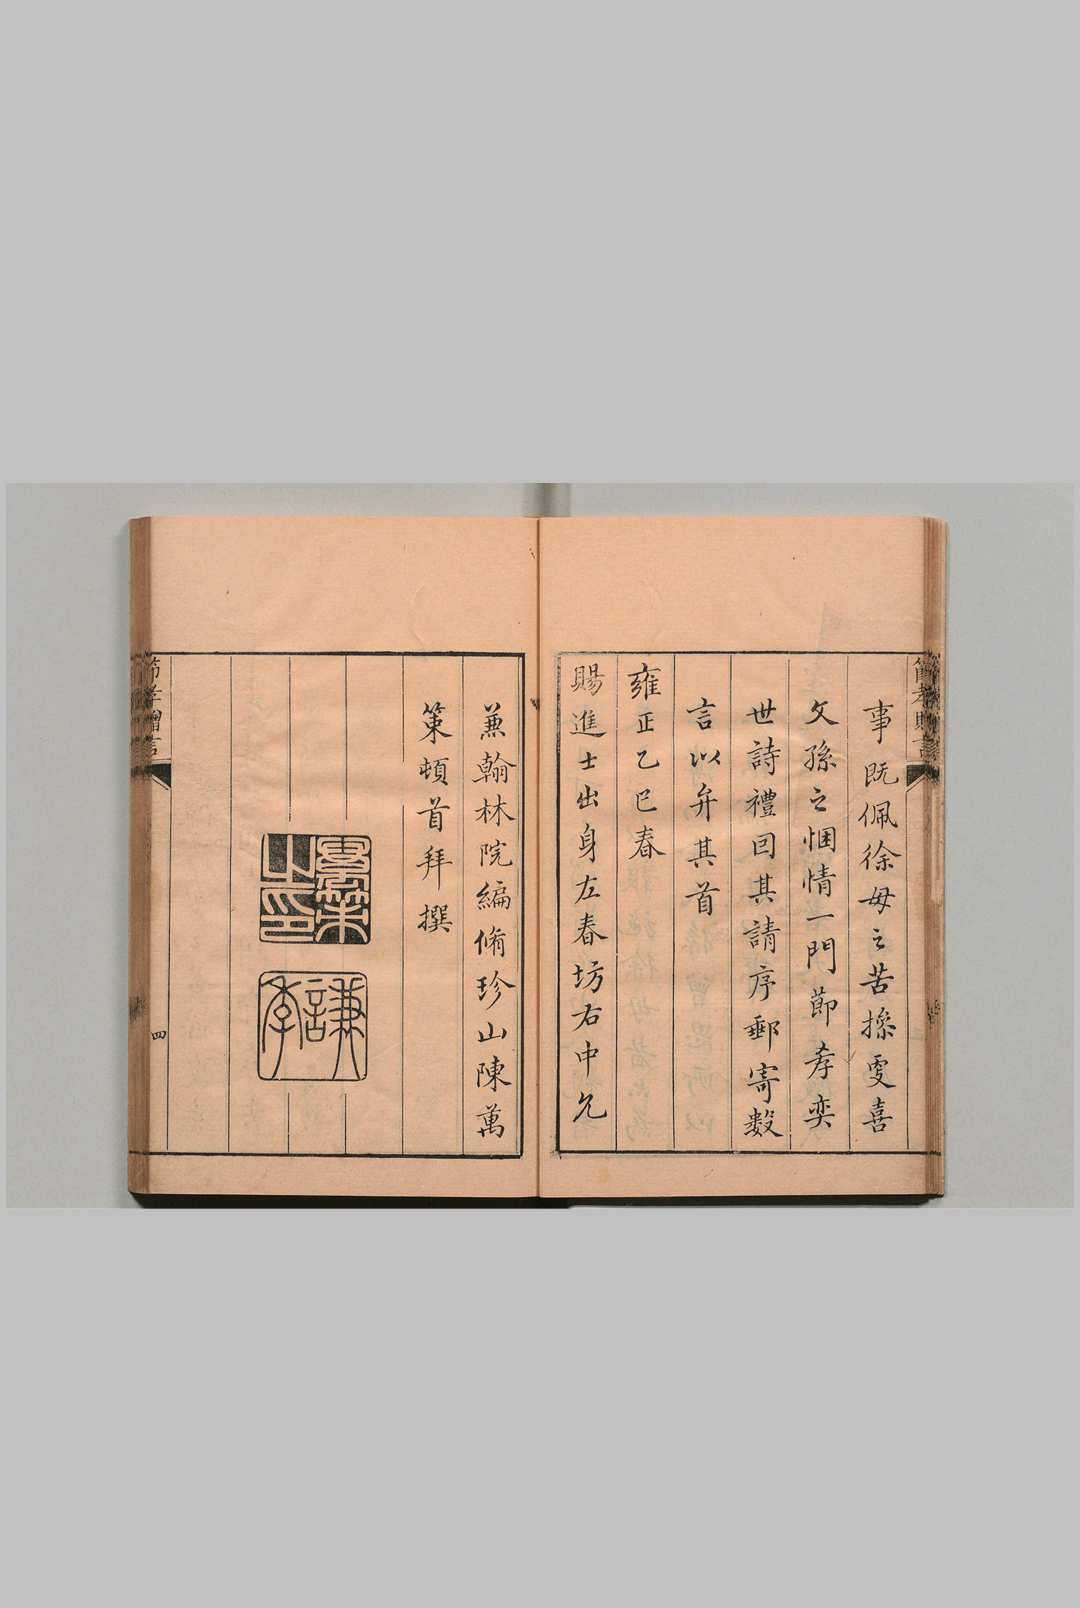 事既佩徐母之苦操雯喜
文孫之悃情一門節孝奕
世詩禮囙其請序郵寄數
言以弁其首
雍正乙巳春
賜進士出身左春坊右中允
兼翰林院編脩珍山陳萬
策頓首拜撰
謙季
節孝贈言
四